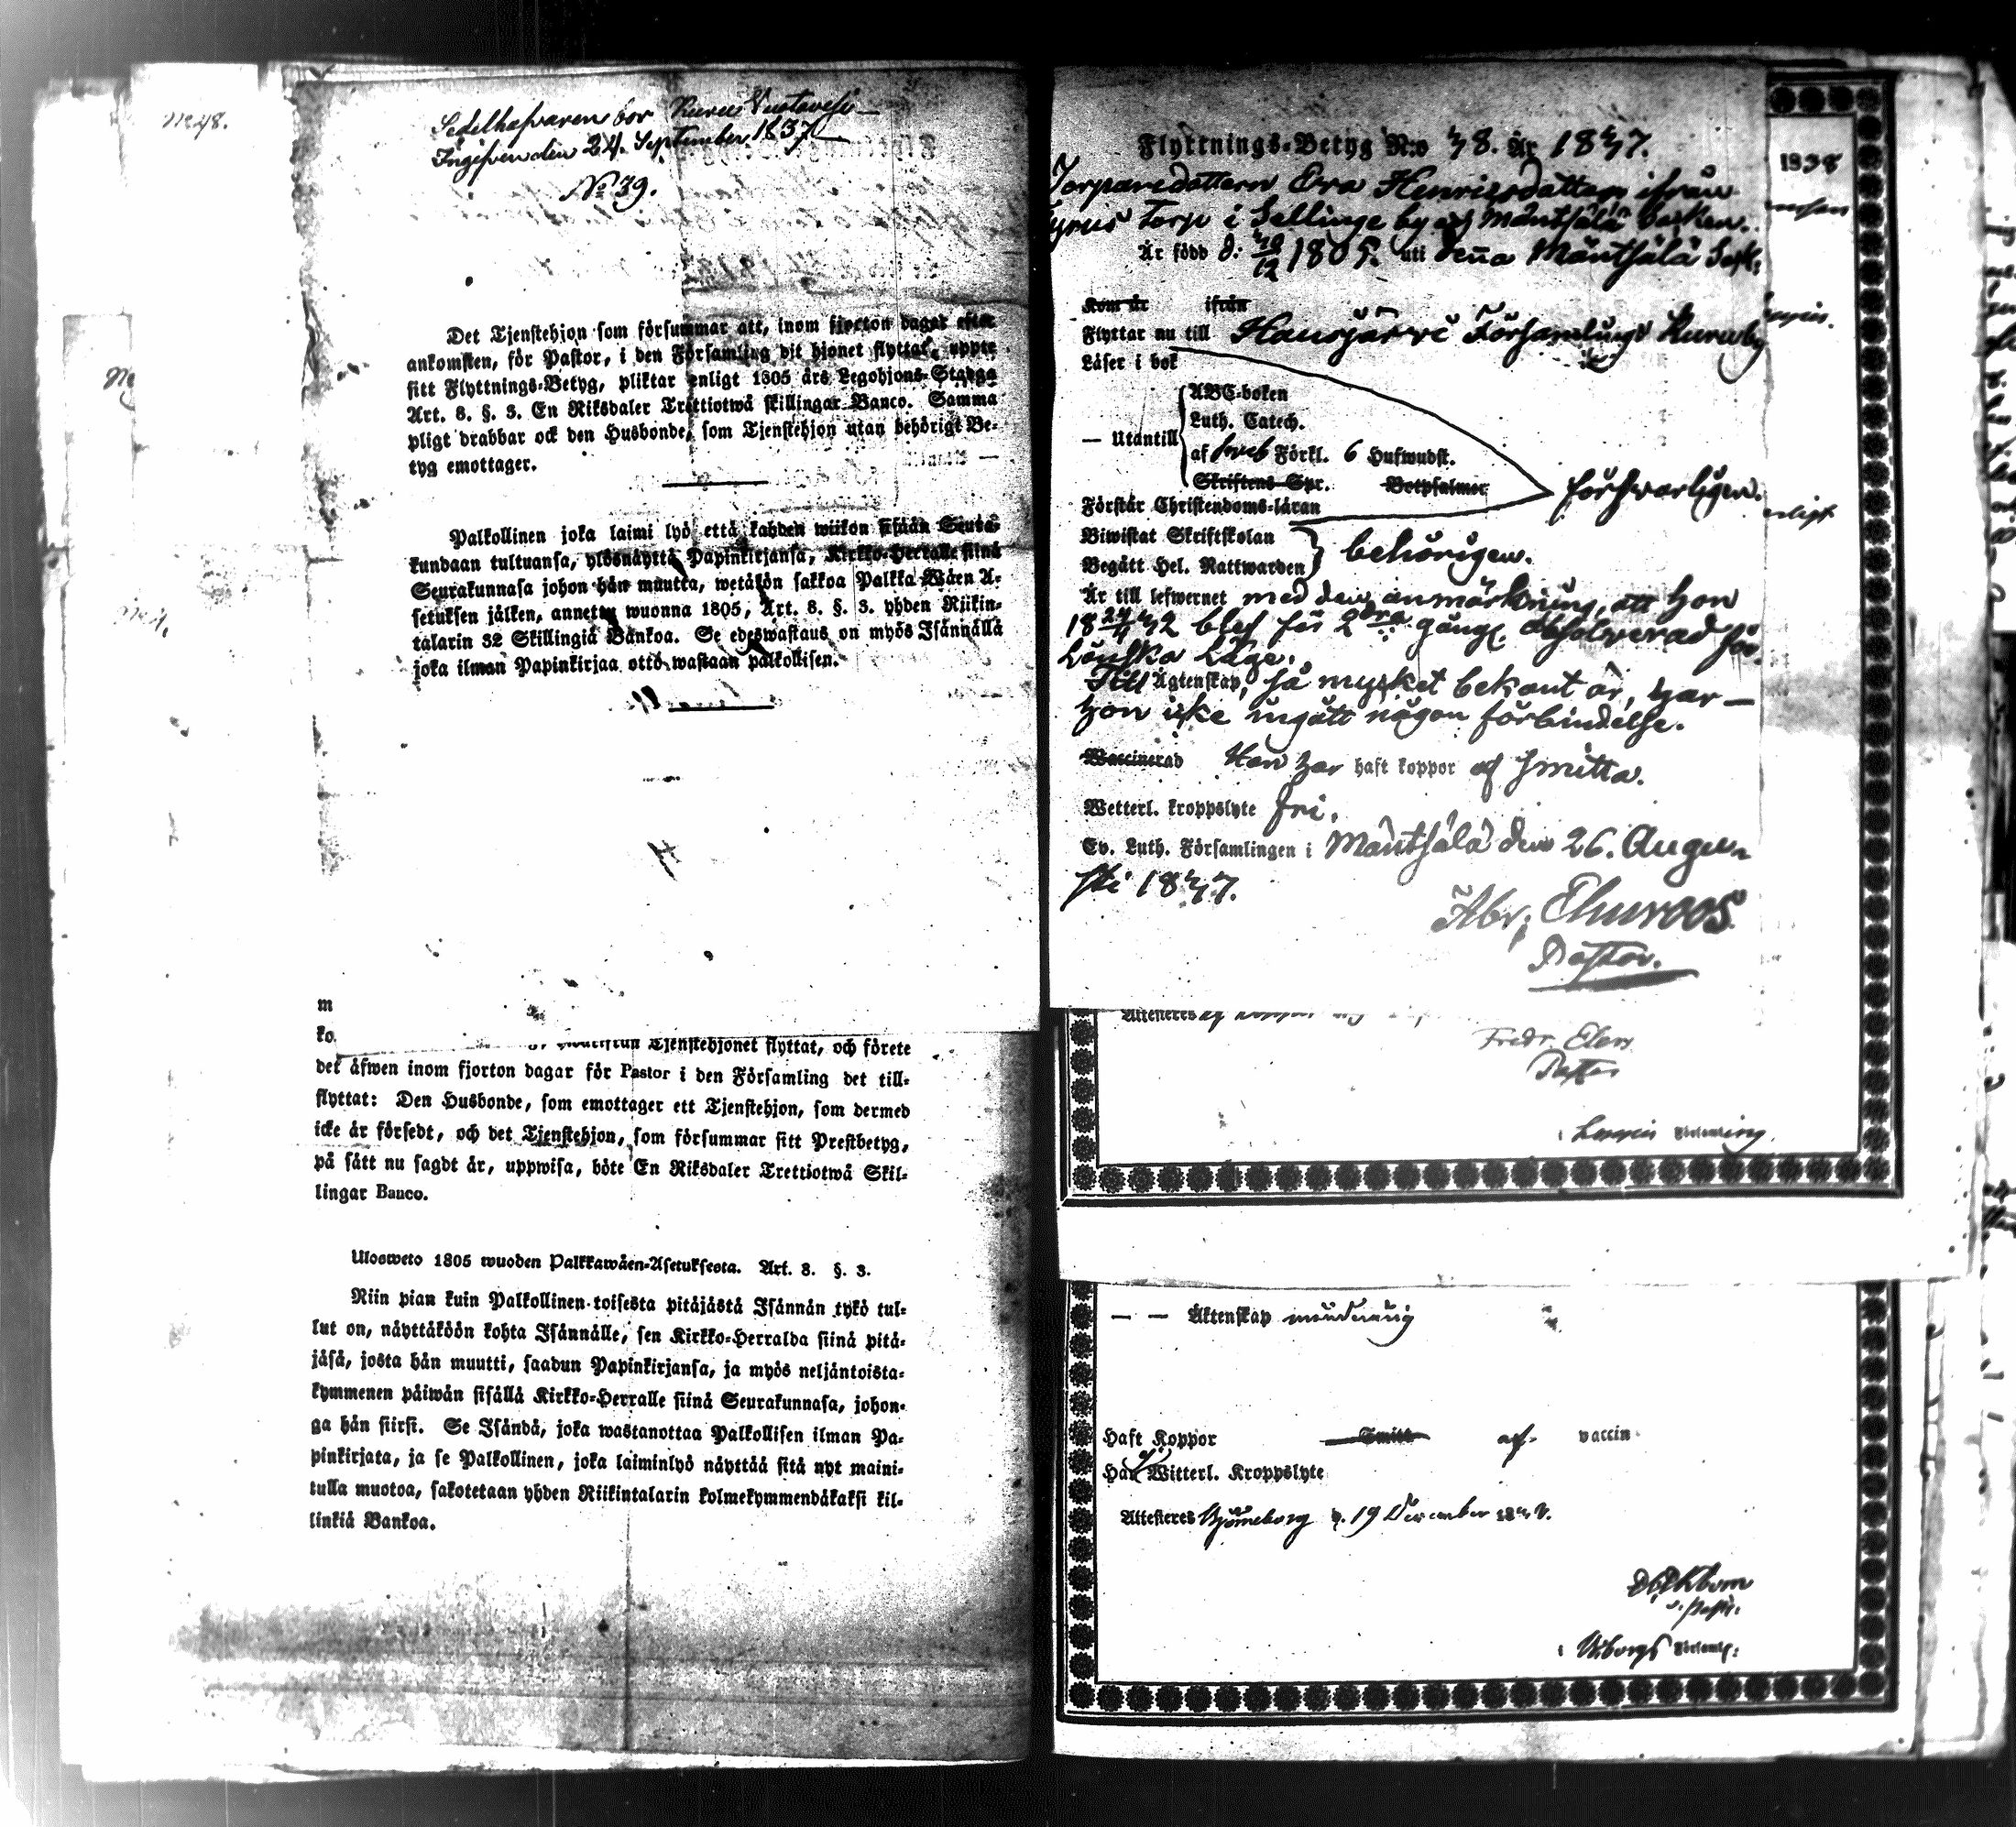 No 48.
Sedelhafvaren bor Kuru Gustavesi
Ingifven den 24. September 1837
No 39.
Det Tjenstehjon som försummar att, inom fjorton dagar efter
ankomsten, för Pastor, i den Församling dit hjonet flyttat, uppte
sitt Flyttnings-Betyg, pliktar enligt 1805 års Legohjons-Stadga
Art. 8. §. 3. En Riksdaler Trettiotwå skillingar Banco. Samma
pligt drabbar ock den Husbonde, som Tjenstehjon utan behörigt Be-
tyg emottager.
Palkollinen joka laimi lyö että kahden wiikon sisään Seura-
kundaan tultuansa, ylösnäyttä Papinkirjansa, Kirkko-Herralle siinä
Seurakunnasa johon hän muutta, wetäkön sakkoa Palkka Wäen A-
setuksen jälken, annettu wuonna 1805, Art. 8. §. 3. yhden Riikin-
talarin 32 Skillingiä Bankoa. Se edeswastaus on myös Isännällä
joka ilman Papinkirjaa ottö wastaan palkollisen.
m
ko
Tjenstehjonet flyttat, och förete
det äfwen inom fjorton dagar för Pastor i den Församling det till-
flyttat: Den Husbonde, som emottager ett Tjenstehjon, som dermed
icke är försedt, och det Tjenstehjon, som försummar sitt Prestbetyg,
på sätt nu sagdt är, uppwisa, böte En Riksdaler Trettiotwå Skil-
lingar Banco.
Ulosweto 1805 wuoden Palkkawäen-Asetuksesta. Art. 8. §. 3.
Niin pian kuin Palkollinen toisesta pitäjästä Isännän tykö tul-
lut on, näyttäköön kohta Isännälle, sen Kirkko-Herralda siinä pitä-
jäsä, josta hän muutti, saadun Papinkirjansa, ja myös neljäntoista-
kymmenen päiwän sisällä Kirkko-Herralle siinä Seurakunnasa, johon-
ga hän siirsi. Se Isändä, joka wastanottaa Palkollisen ilman Pa-
pinkirjata, ja se Palkollinen, joka laiminlyö näyttää sitä nyt maini-
tulla muotoa, sakotetaan yhden Riikintalarin kolmekymmendäkaksi kil-
linkiä Bankoa.
Flyttnings-Betyg N:o 38. År 1837.
Torparedottern Eva Henricsdotter ifrån
Torp i Sellinge by af Mäntsälä Socken.
Är född d: 30/12 1805. uti denna Mäntsälä Sock:
Kom år ifrån
Flyttar nu till Hausjärvi Församlings Kuru by
Läser i bok
— Utantill
ABC-boken
Luth. Catech.
af Sveb Förkl. 6 Hufwudst.
Skriftens Spr. Botpsalmer
försvarligen.
Förstår Christendoms-läran
Biwistat Skriftskolan
Begått Hel. Nattwarden
behörigen.
Är till lefwernet med den anmärkning, att hon
18 24/4 32 blef för 2dra gång. absolverad för
Lönska Läge.
Till Ägtenskap, så mycket bekant är, har —
hon icke ingått någon förbindelse.
Vaccinerad Hon har haft koppor af smitta.
Wetterl. kroppslyte fri.
Ev. Luth. Församlingen i Mäntsälä den 26. Augu-
sti 1837.
Abr. Elmroos
Pastor.
1838
Attesteras
Fredr. Elers
Pastor
i Församling
— — Äktenskap
Haft Koppor Smitt af vaccin
Har ej Witterl. Kroppslyte
Attesteras Björneborg d. 19 December 1837.
v. Past:
i Församl: